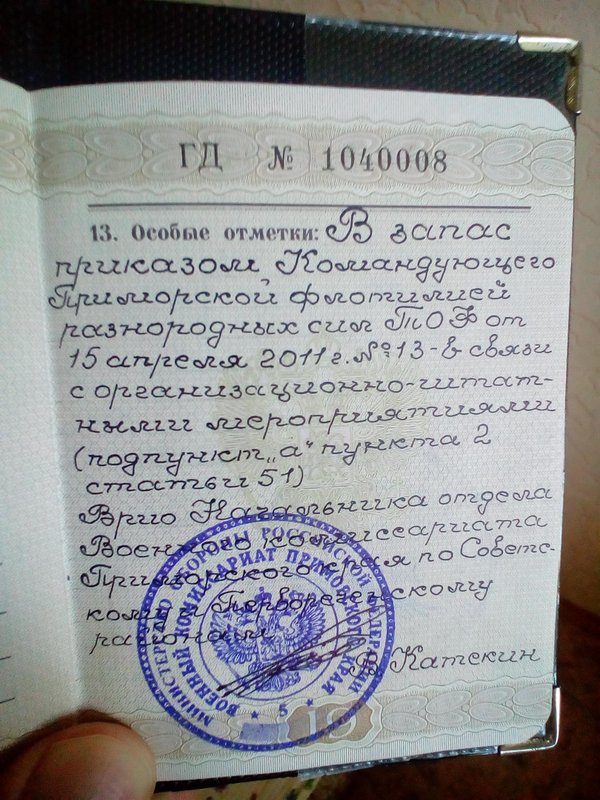 ГД № 1040008
13. Особые отметки: В запас
приказом Командующего
Приморской флотилией
разнородных сил ТОФ от
15 апреля 2011 г. № 13 - в связи
с организационно-штат-
ными мероприятиями
(подпункт „а“ пункта 2
статьи 51)
Врио Начальника отдела
Военного комиссариата
Приморского края по Советс-
кому и Первореченскому
районам
В. Катекин
МИНИСТЕРСТВО ОБОРОНЫ РОССИЙСКОЙ ФЕДЕРАЦИИ
ВОЕННЫЙ КОМИССАРИАТ ПРИМОРСКОГО КРАЯ
* 5 *